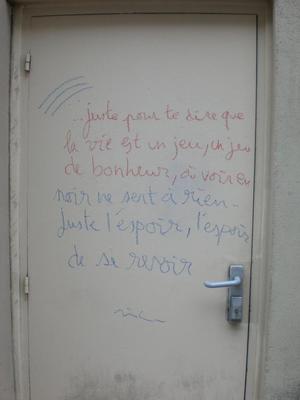 ...juste pour te dire que
la vie est un jeu, un jeu
de bonheur, où voir en
noir ne sert à rien -
Juste l'espoir, l'espoir
de se revoir